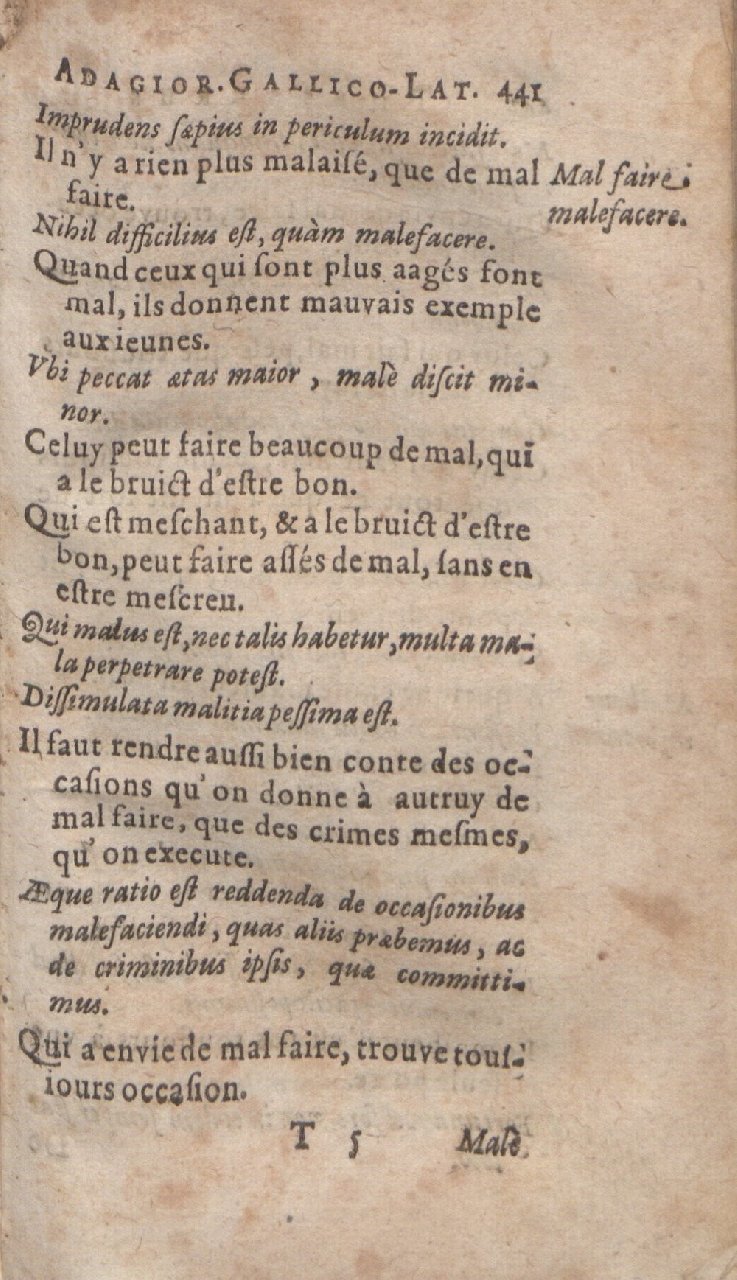 ADAGIOR. GALLICO-LAT. 441
Imprudens sæpius in periculum incidit.
Il n'y a rien plus malaisé, que de mal
faire.
Mal faire.
malefacere.
Nihil difficilius est, quàm malefacere.
Quand ceux qui sont plus aagés font
mal, ils donnent mauvais exemple
aux ieunes.
Vbi peccat ætas maior, malè discit mi-
nor.
Celuy peut faire beaucoup de mal, qui
a le bruict d'estre bon.
Qui est meschant, & a le bruict d'estre
bon, peut faire assés de mal, sans en
estre mescreu.
Qui malus est, nec talis habetur, multa ma-
la perpetrare potest.
Dissimulata malitia pessima est.
Il faut rendre aussi bien conte des oc-
casions qu'on donne à autruy de
mal faire, que des crimes mesmes,
qu'on execute.
Æque ratio est reddenda de occasionibus
malefaciendi, quas aliis præbemus, ac
de criminibus ipsis, quæ committi-
mus.
Qui a envie de mal faire, trouve tous-
iours occasion.
T 5 Malè